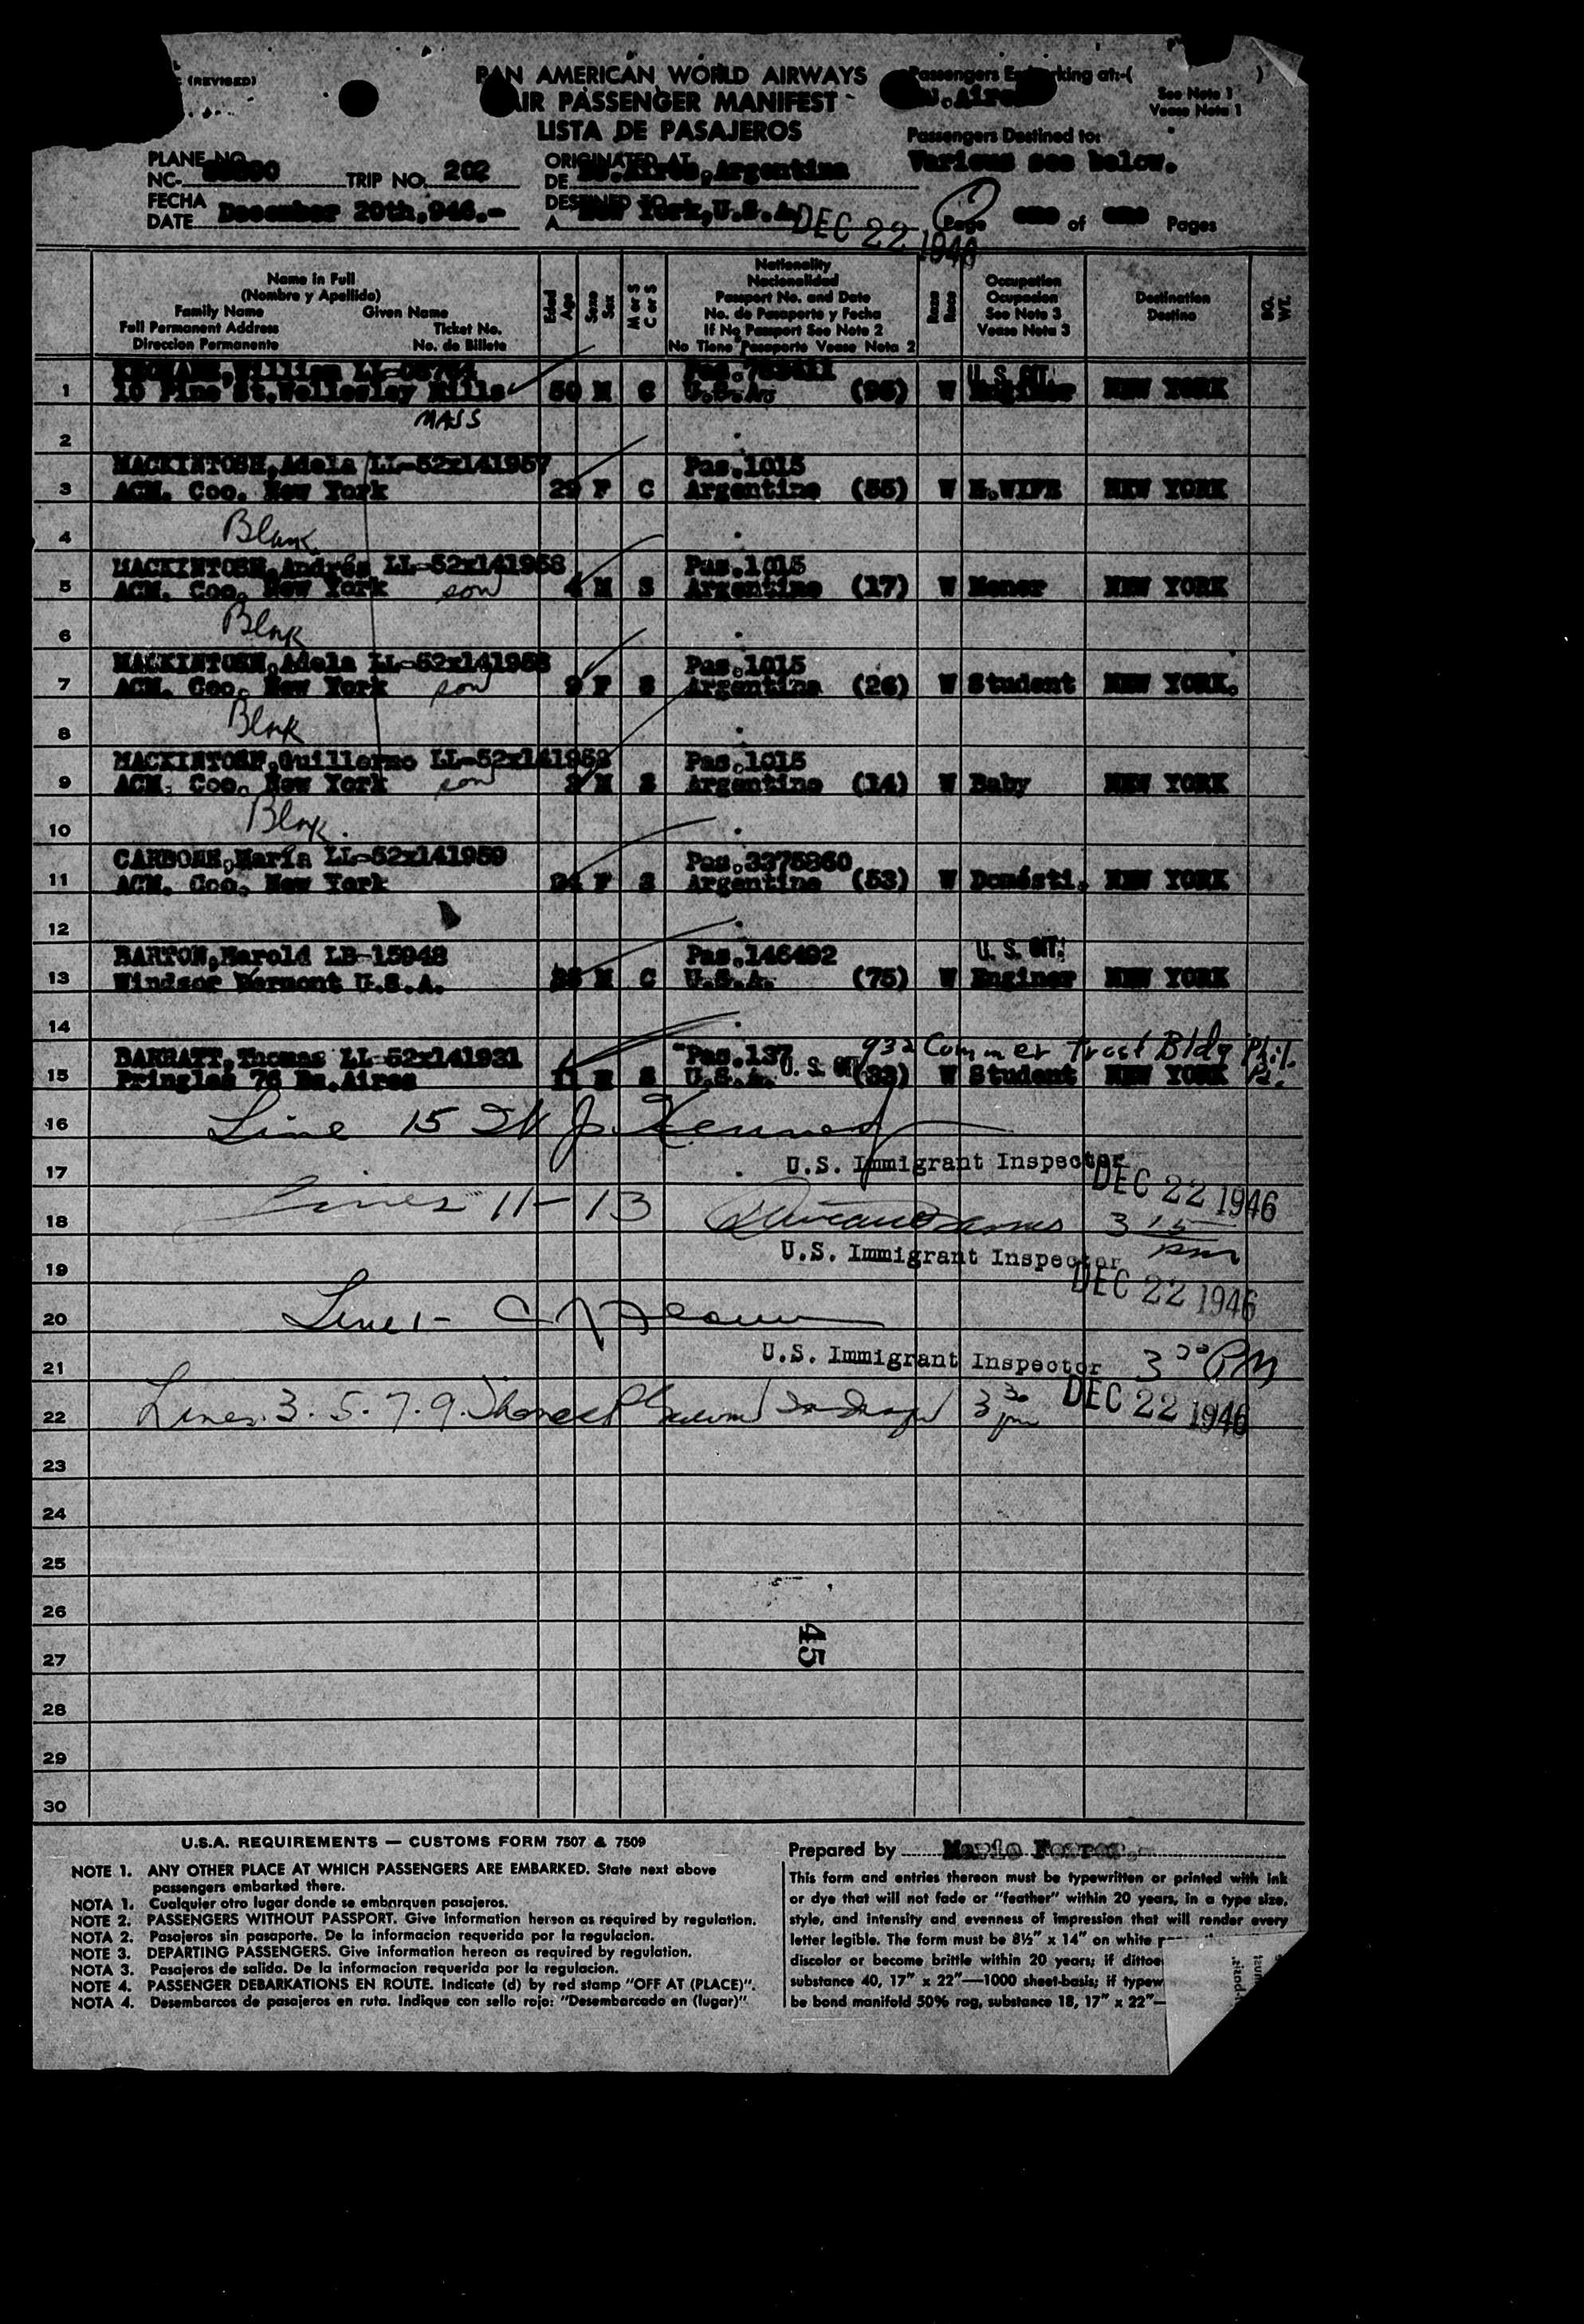 (REVISED)
PAN AMERICAN WORLD AIRWAYS
AIR PASSENGER MANIFEST
LISTA DE PASAJEROS
Passengers Embarking at:-( )
See Note 1
Vease Nota 1
Passengers Destined to:
Various see below.
PLANE NO.
NC- TRIP NO. 202
ORIGINATED AT
DE Bs.Aires,Argentina
FECHA
DATE December 20th,946.-
DESTINED TO
A New York,U.S.A.
DEC 22 1946
Page one of one Pages
Name in Full
(Nombre y Apellido)
Family Name Given Name
Full Permanent Address Ticket No.
Direccion Permanente No. de Billete
Edad Age
Sexo Sex
M or S
C or S
Nationality
Nacionalidad
Passport No. and Date
No. de Pasaporte y Fecha
If No Passport See Note 2
No Tiene Pasaporte Vease Nota 2
Raza Race
Occupation
Ocupacion
See Note 3
Vease Nota 3
Destination
Destino
BG. WT.
William
U. S. CIT.
1 10 Pine St.Wellesley Hills 50 M C U.S.A. (95) W NEW YORK
MASS
2
MACKINTOSH,Adela LL-52x141957 Pas.1015
3 ACM. Coo. New York 29 F C Argentina (55) W H.WIFE NEW YORK
4 Blank
MACKINTOSH,Andrés LL-52x141958 Pas.1015
5 ACM. Coo. New York son 4 M S Argentina (17) W Menor NEW YORK
6 Blnk
MACKINTOSH,Adela LL-52x141958 Pas.1015
7 ACM. Coo. New York son F S Argentina (26) W Student NEW YORK.
8 Blnk
MACKINTOSH,Guillermo LL-52x141958 Pas.1015
9 ACM. Coo. New York son M S Argentina (14) W Baby NEW YORK
10 Blnk.
María LL-52x141959 Pas.3375860
11 ACM. Coo. New York F S Argentina (53) W Domésti. NEW YORK
12
BARTON,Harold LB-15948 Pas.146492 U. S. CIT.
13 Windsor Vermont U.S.A. M C U.S.A. (75) W Enginer NEW YORK
14
BARRATT,Thomas LL-52x141931 Pas.137 U. S. CIT. 932 Commer Trust Bldg Phil. Pa.
15 Pringles 76 Bs.Aires 11 M S U.S.A. (33) W Student NEW YORK
16 Line 15 J. Kennedy
17 U.S. Immigrant Inspector DEC 22 1946
18 Lines 11-13 3 15 pm
19 U.S. Immigrant Inspector DEC 22 1946
20 Line 1-
21 U.S. Immigrant Inspector 3 30 PM
22 Lines 3. 5. 7. 9. 3 30 pm DEC 22 1946
23
24
25
26
27
45
28
29
30
U.S.A. REQUIREMENTS — CUSTOMS FORM 7507 & 7509
NOTE 1. ANY OTHER PLACE AT WHICH PASSENGERS ARE EMBARKED. State next above
passengers embarked there.
NOTA 1. Cualquier otro lugar donde se embarquen pasajeros.
NOTE 2. PASSENGERS WITHOUT PASSPORT. Give information hereon as required by regulation.
NOTA 2. Pasajeros sin pasaporte. De la informacion requerida por la regulacion.
NOTE 3. DEPARTING PASSENGERS. Give information hereon as required by regulation.
NOTA 3. Pasajeros de salida. De la informacion requerida por la regulacion.
NOTE 4. PASSENGER DEBARKATIONS EN ROUTE. Indicate (d) by red stamp "OFF AT (PLACE)".
NOTA 4. Desembarcos de pasajeros en ruta. Indique con sello rojo: "Desembarcado en (lugar)"
Prepared by
This form and entries thereon must be typewritten or printed with ink
or dye that will not fade or "feather" within 20 years, in a type size,
style, and intensity and evenness of impression that will render every
letter legible. The form must be 8½" x 14" on white
discolor or become brittle within 20 years; if dittoe
substance 40, 17" x 22"—1000 sheet-basis; if typew
be bond manifold 50% rag, substance 18, 17" x 22"—